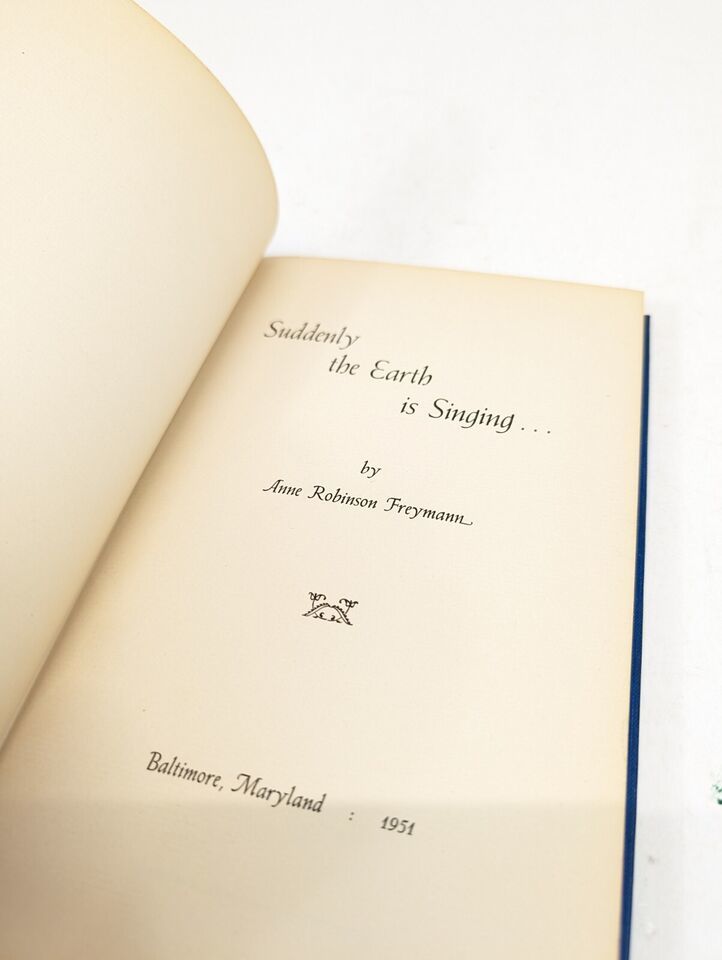 Suddenly
the Earth
is Singing...
by
Anne Robinson Freymann
Baltimore, Maryland : 1951